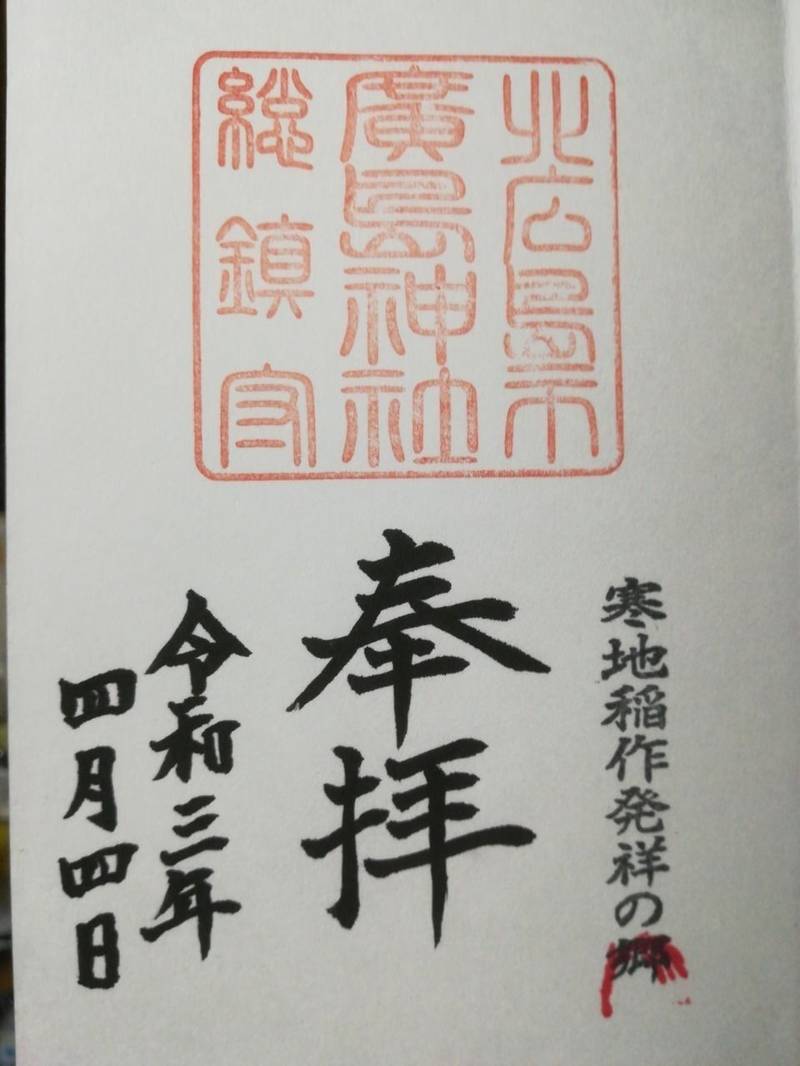 北広島市
廣島神社
総鎮守
寒地稲作発祥の郷
奉拝
令和三年
四月四日